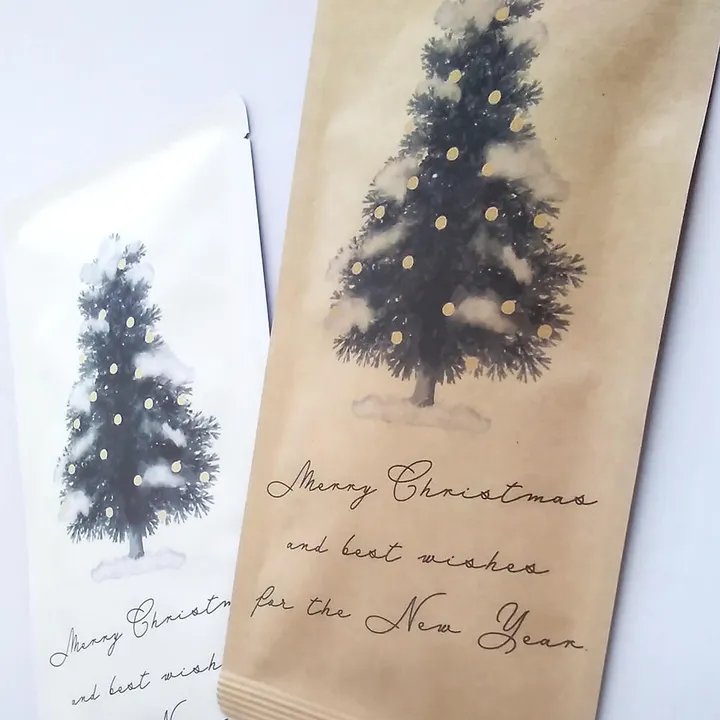 Merry Christmas
and best wishes
for the New Year.
Merry Christm
and best wish